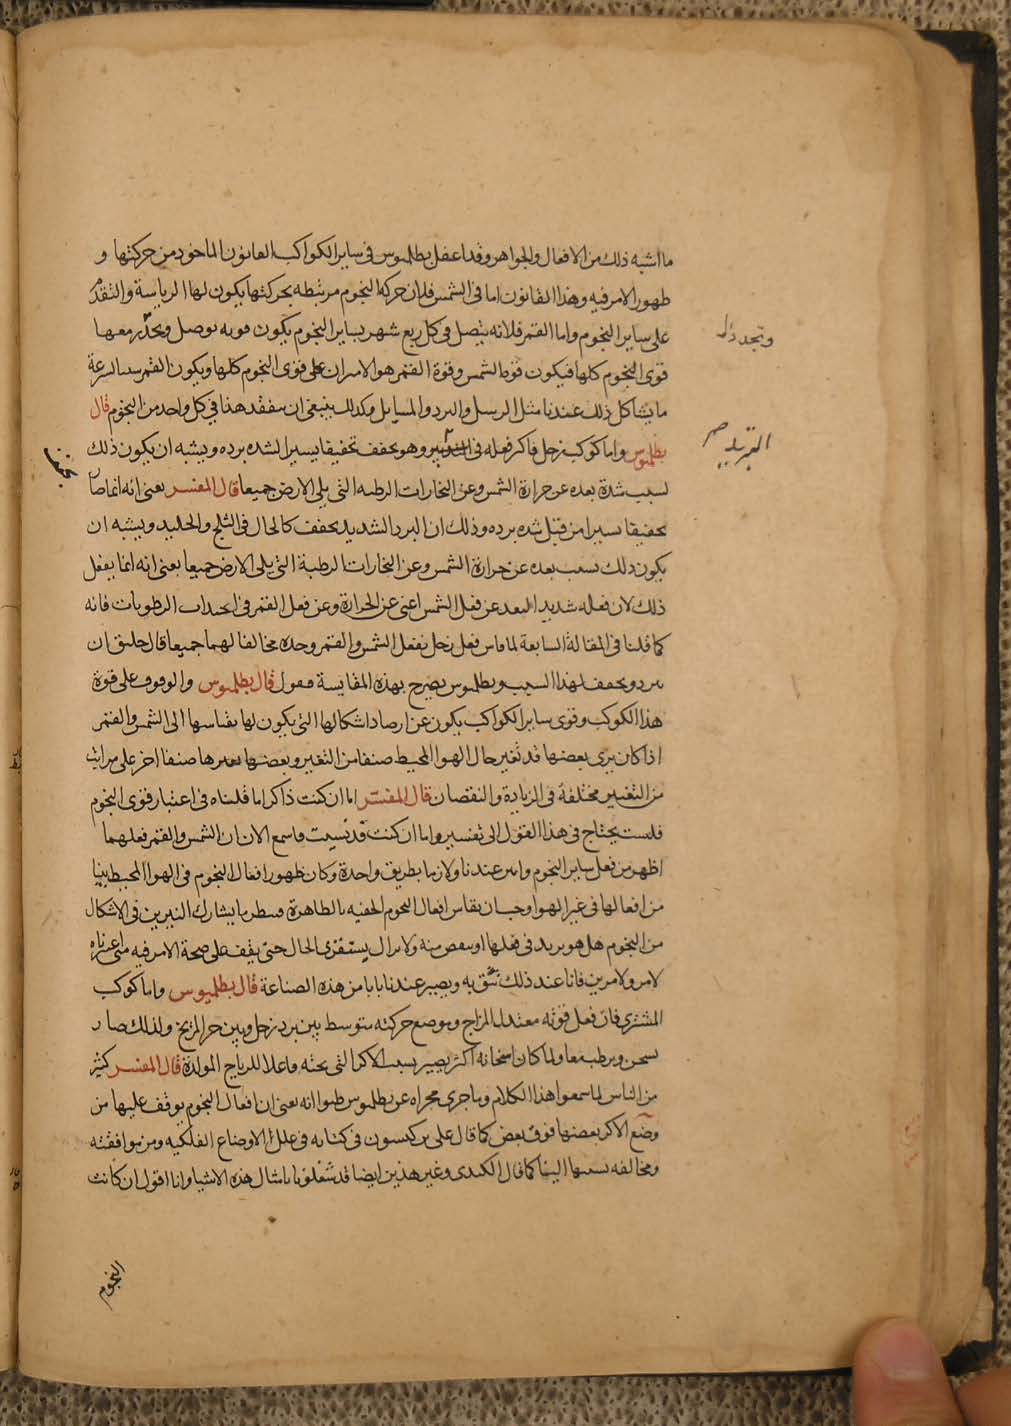 ما اشبه ذلك من الافعال والجواهر وقد اغفل بطلميوس في ساير الكواكب القانون الماخوذ من حركتها و
ظهور الامر فيه وهذا القانون اما في الشمس فلان حركة النجوم مرتبطه بحركتها يكون لها الرياسة والتقدم
على ساير النجوم واما القمر فلانه يتصل في كل ربع شهر بساير النجوم يكون قوبه يوصل ويحدر معها
وتجدد ذلك
قوى النجوم كلها فيكون قوة الشمس وقوة القمر هو الامران على قوى النجوم كلها ويكون القمر السرعة
ما يشاكل ذلك عندنا مثل الرسل والبرد والمسايل وكذلك ينبغى ان يتفقد هذا في كل واحد من النجوم قال
التبريد صح
بطلميوس واما كوكب زحل فاكثر فعله في وهو يجفف تجفيفا يسيرا لشدة برده ويشبه ان يكون ذلك
لسبب شدة بعده عن حرارة الشمس وعن البخارات الرطبه التي يلى الارض جميعا قال المفسر يعنى انه انما صار
يجفف
تجفيفا يسيرا من قبل شده برده وذلك ان البرد الشديد يجفف كالحال في الثلج والجليد ويشبه ان
يكون ذلك بسبب بعده عن حرارة الشمس وعن البخارات الرطبة التي يلى الارض جميعا يعنى انه انما يفعل
ذلك لان فعله شديد البعد عن فعل الشمس اعنى عن الحرارة وعن فعل القمر في اجتذاب الرطوبات فانه
كما قلنا في المقالة السابعة لما قاس فعل زحل بفعل الشمس والقمر وحده مخالفا لهما جميعا قال خليق ان
يبرد ويجفف لهذا السبب وبطلميوس يصرح بهذه المقايسة فيقول قال بطلميوس والوقوف على قوة
هذا الكوكب وقوى ساير الكواكب يكون عن ارصاد اشكالها التي يكون لها بقياسها الى الشمس والقمر
اذا كان يرى بعضها قد تغير حال الهوا المحيط صنفا من التغير وبعضها يغيرها صنفا اخر على مراتب
من التغيير مختلفة في الزيادة والنقصان قال المفسر اما ان كنت ذاكرا ما قلناه في اعتبار قوى النجوم
فلست يحتاج في هذا القول الى تفسير واما ان كنت قد نسيت فاسمع الان ان الشمس والقمر فعلهما
اظهر من فعل ساير النجوم وابين عندنا ولازما بطريق واحدة وكان ظهور افعال النجوم في الهوا المحيط بينا
من افعالها في غير الهوا وجب ان يقاس افعال النجوم الخفيه بالظاهرة فينظر ما يشارك النيرين في الاشكال
من النجوم هل هو يزيد في فعلها او ينقص منه ولا يزال يستقرى الحال حتى يقف على صحة الامر فيه متى اعتبرناه
لامر ولامرين فانا عند ذلك نثق به ويصير عندنا بابا من هذه الصناعة قال بطلميوس واما كوكب
المشتري فان فعل قوته معتدل المزاج وموضع حركته متوسط بين برد زحل وبين حر المريخ ولذلك صار
يسخن ويرطب معا ولما كان اسخانه اكثر يصير بسبب الاكر التي تحته فاعلا للرياح المولدة قال المفسر كثير
من الناس لما سمعوا هذا الكلام وما جرى مجراه عن بطلميوس ظنوا انه يعنى ان افعال النجوم يوقف عليها من
وضع الاكر بعضها فوق بعض كما قال على بن في كتابه في علل الاوضاع الفلكيه ومن موافقته
ومخالفه نسبها الينا كما قال الكندى وغير هذين ايضا قد شغلونا بامثال هذه الاشيا وانا اقول ان كانت
النجوم